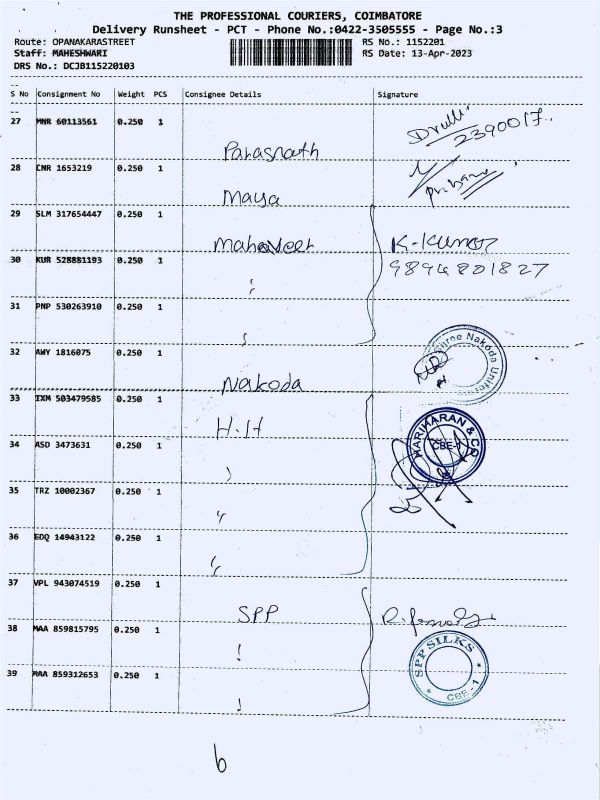 THE PROFESSIONAL COURIERS, COIMBATORE
Delivery Runsheet - PCT - Phone No.:0422-3505555 - Page No.:3
Route: OPANAKARASTREET RS No.: 1152201
Staff: MAHESHWARI RS Date: 13-Apr-2023
DRS No.: DCJB115220103
S No Consignment No Weight PCS Consignee Details Signature
27 MNR 60113561 0.250 1
Parasnath 2390017.
28 CNR 1653219 0.250 1
Maya
29 SLM 317654447 0.250 1
Mahaveer K-Kumar
30 KUR 528881193 0.250 1 9894801827
31 PNP 530263910 0.250 1
32 AWY 1816075 0.250 1
Nakoda
Shree Nakoda
33 IXM 503479585 0.250 1
H.H
HARIHARAN & CO
CBE-1
34 ASD 3473631 0.250 1
35 TRZ 10002367 0.250 1
36 EDQ 14943122 0.250 1
37 VPL 943074519 0.250 1
SPP
38 MAA 859815795 0.250 1
SPP SILKS
CBE - 1
39 MAA 859312653 0.250 1
6